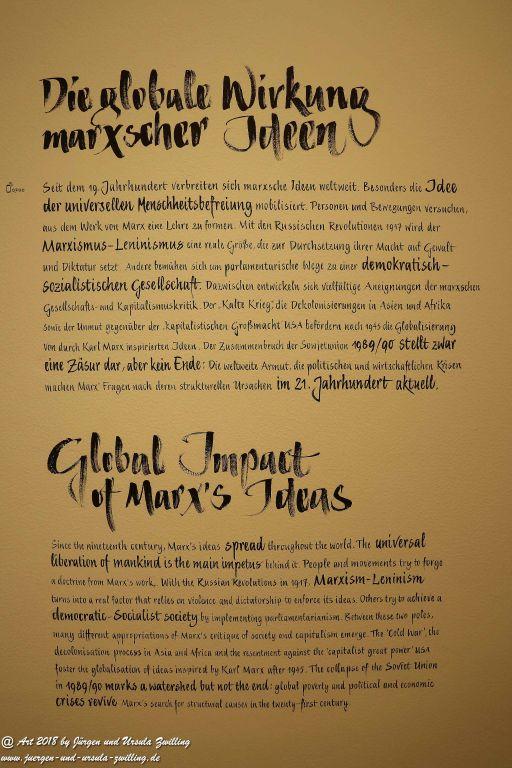 Die globale Wirkung
marxscher Ideen
Seit dem 19. Jahrhundert verbreiten sich marxsche Ideen weltweit. Besonders die Idee
der universellen Menschheitsbefreiung mobilisiert. Personen und Bewegungen versuchen,
aus dem Werk von Marx eine Lehre zu formen. Mit den Russischen Revolutionen 1917 wird der
Marxismus-Leninismus eine reale Größe, die zur Durchsetzung ihrer Macht auf Gewalt
und Diktatur setzt. Andere bemühen sich um parlamentarische Wege zu einer demokratisch-
sozialistischen Gesellschaft. Dazwischen entwickeln sich vielfältige Aneignungen der marxschen
Gesellschafts- und Kapitalismuskritik. Der „Kalte Krieg“, die Dekolonisierungen in Asien und Afrika
sowie der Unmut gegenüber der „kapitalistischen Großmacht“ USA befördern nach 1945 die Globalisierung
von durch Karl Marx inspirierten Ideen. Der Zusammenbruch der Sowjetunion 1989/90 stellt zwar
eine Zäsur dar, aber kein Ende: Die weltweite Armut, die politischen und wirtschaftlichen Krisen
machen Marx' Fragen nach deren strukturellen Ursachen im 21. Jahrhundert aktuell.
Global Impact
of Marx's Ideas
Since the nineteenth century, Marx's ideas spread throughout the world. The universal
liberation of mankind is the main impetus behind it. People and movements try to forge
a doctrine from Marx's work. With the Russian Revolutions in 1917, Marxism-Leninism
turns into a real factor that relies on violence and dictatorship to enforce its ideas. Others try to achieve a
democratic-Socialist society by implementing parliamentarianism. Between these two poles,
many different appropriations of Marx's critique of society and capitalism emerge. The 'Cold War', the
decolonisation process in Asia and Africa and the resentment against the 'capitalist great power' USA
foster the globalisation of ideas inspired by Karl Marx after 1945. The collapse of the Soviet Union
in 1989/90 marks a watershed but not the end: global poverty and political and economic
crises revive Marx's search for structural causes in the twenty-first century.
@ Art 2018 by Jürgen und Ursula Zwilling
www.juergen-und-ursula-zwilling.de